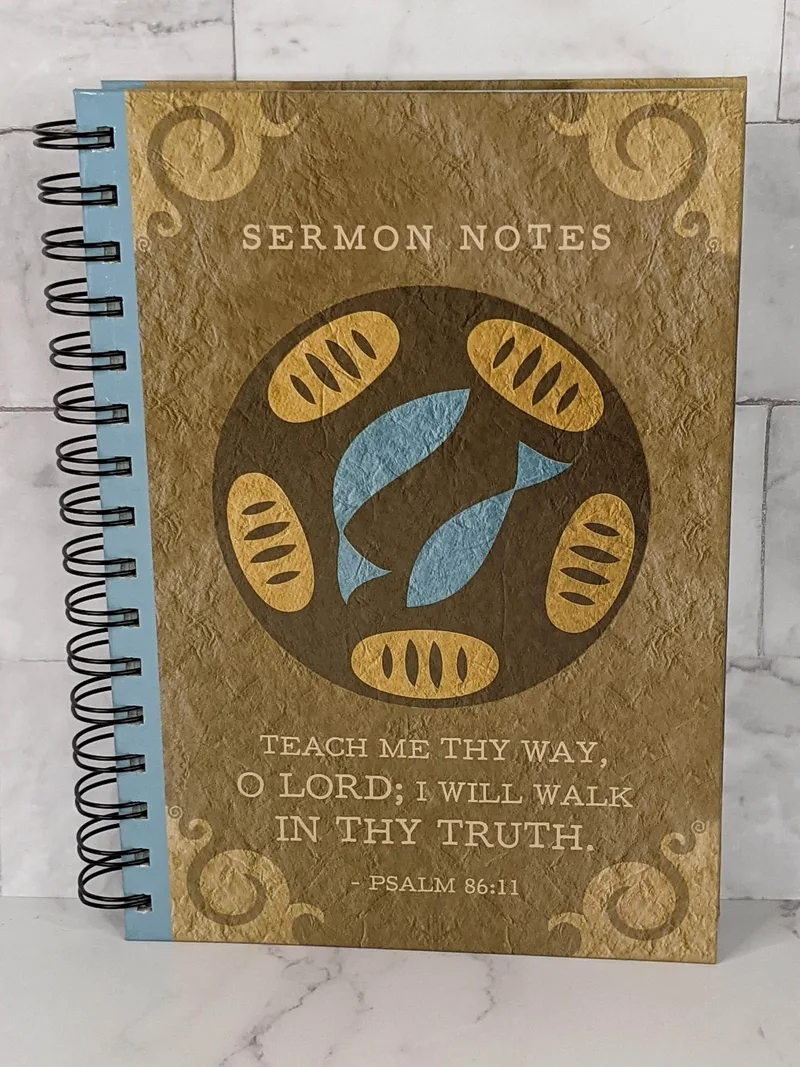 SERMON NOTES
TEACH ME THY WAY,
O LORD; I WILL WALK
IN THY TRUTH.
- PSALM 86:11